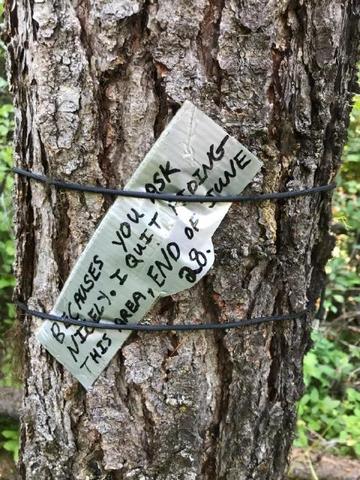 BECAUSES YOU ASK
NICELY. I QUIT
THIS AREA, END OF JUNE
28.